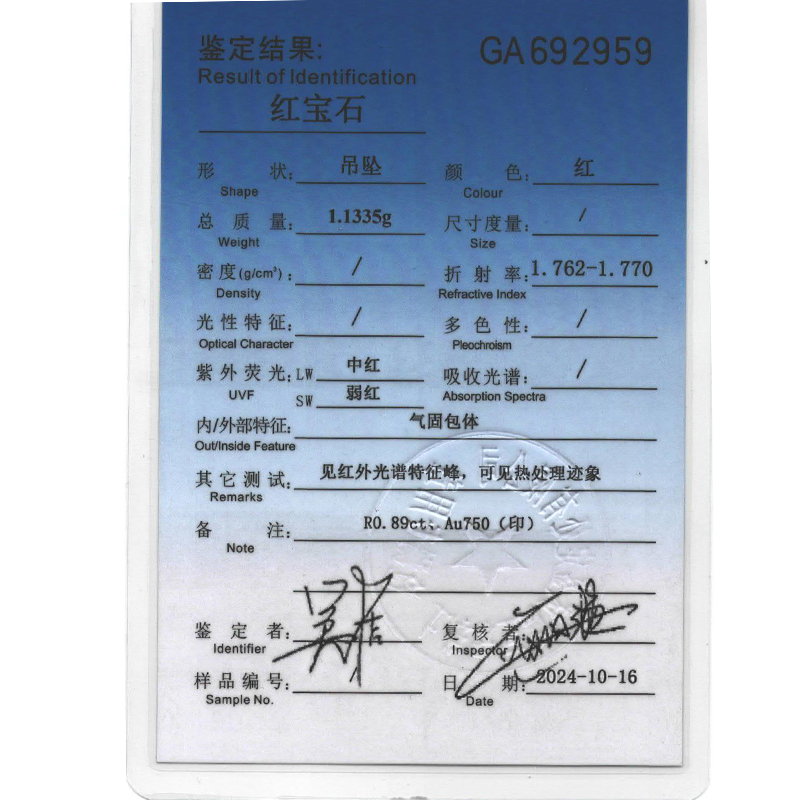 鉴定结果: GA692959
Result of Identification
红宝石
形 状: 吊坠 颜 色: 红
Shape Colour
总 质 量: 1.1335g 尺寸度量: /
Weight Size
密度(g/cm³): / 折 射 率: 1.762-1.770
Density Refractive Index
光性特征: / 多 色 性: /
Optical Character Pleochroism
紫外荧光: LW 中红 吸收光谱: /
UVF SW 弱红 Absorption Spectra
内/外部特征: 气固包体
Out/Inside Feature
其它测试: 见红外光谱特征峰，可见热处理迹象
Remarks
备 注: R0.89ct、Au750（印）
Note
鉴 定 者: 复 核 者:
Identifier Inspector
样品编号: 日 期: 2024-10-16
Sample No. Date